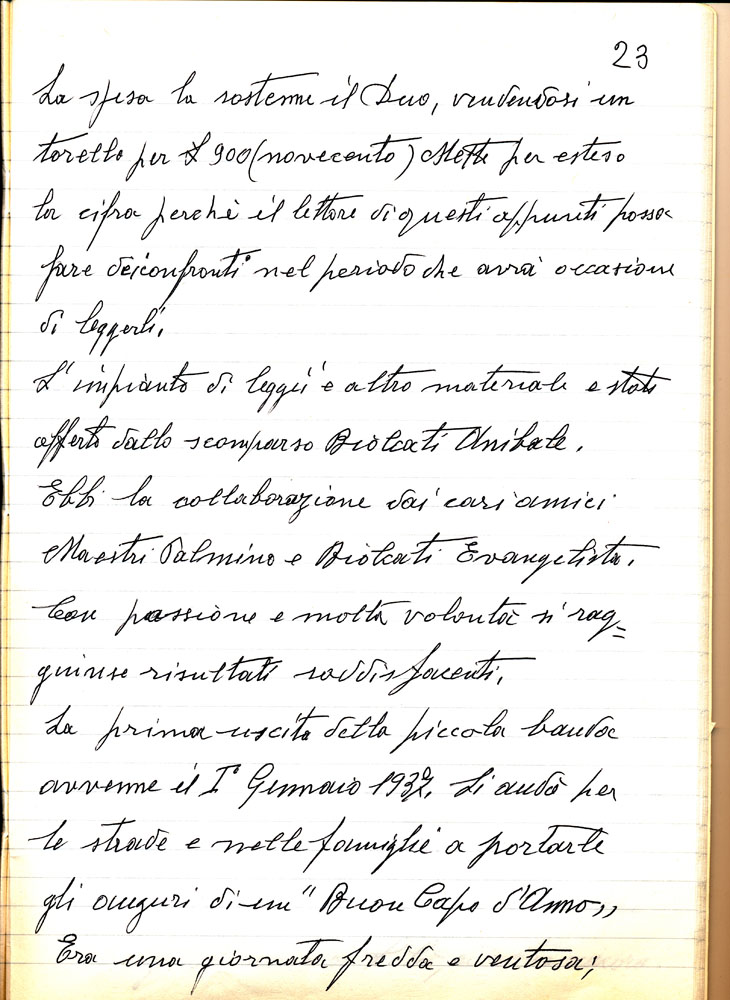 23
La spesa la sostenne il Duo, vendendosi un
torello per £ 900 (novecento) Mette per esteso
la cifra perchè il lettore di questi appunti possa
fare dei confronti nel periodo che avrà occasione
di leggerli.
L'impianto di leggìi e altro materiale e stato
offerto dallo scomparso Biolcati Anibale.
Ebbi la collaborazione dai cari amici
Maestri Palmino e Biolcati Evangelista.
Con passione e molta volontà si rag=
giunse risultati soddisfacenti.
La prima uscita della piccola banda
avvenne il I° Gennaio Si andò per
le strade e nelle famiglie a portarle
gli auguri di un "Buon Capo d'Anno"
Era una giornata fredda e ventosa;